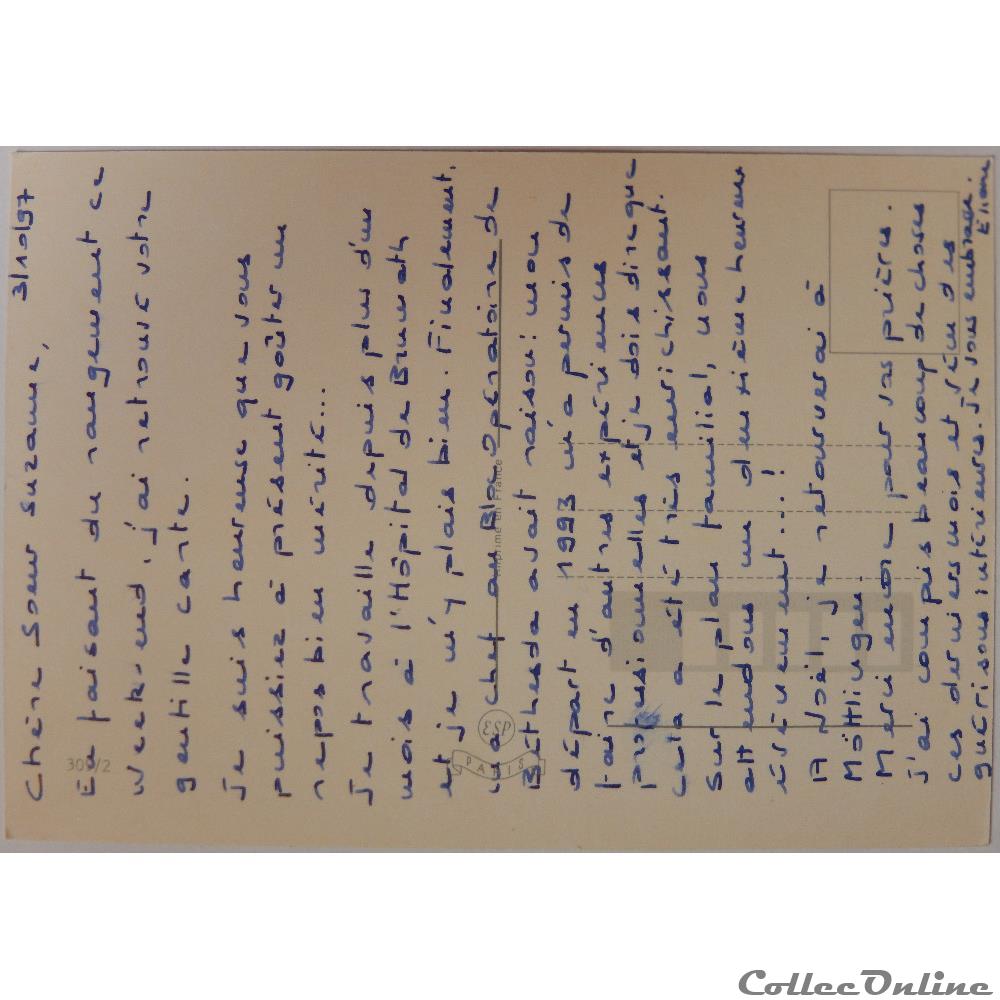 Chère Soeur Suzanne, 3/10/97
En faisant du rangement ce
week-end, j'ai retrouvé votre
gentille carte.
Je suis heureuse que vous
puissiez à présent goûter un
repos bien mérité...
Je travaille depuis plus d'un
mois à l'Hôpital de Brumath
et je m'y plais bien. Finalement,
chef au Bloc Opératoire de
Bethesda avait raison: mon
départ en 1993 m'a permis de
faire d'autres expériences
professionnelles et je dois dire que
cela a été très enrichissant.
Sur le plan familial, nous
attendons un deuxième heureux
évènement...!
A Noël, je retournerai à
Möttlingen.
Merci encore pour vos prières.
J'ai compris beaucoup de choses
ces derniers mois et vécu des
guérisons intérieures. Je vous embrasse.
309/2
PARIS
Imprimé en France
CollecOnline